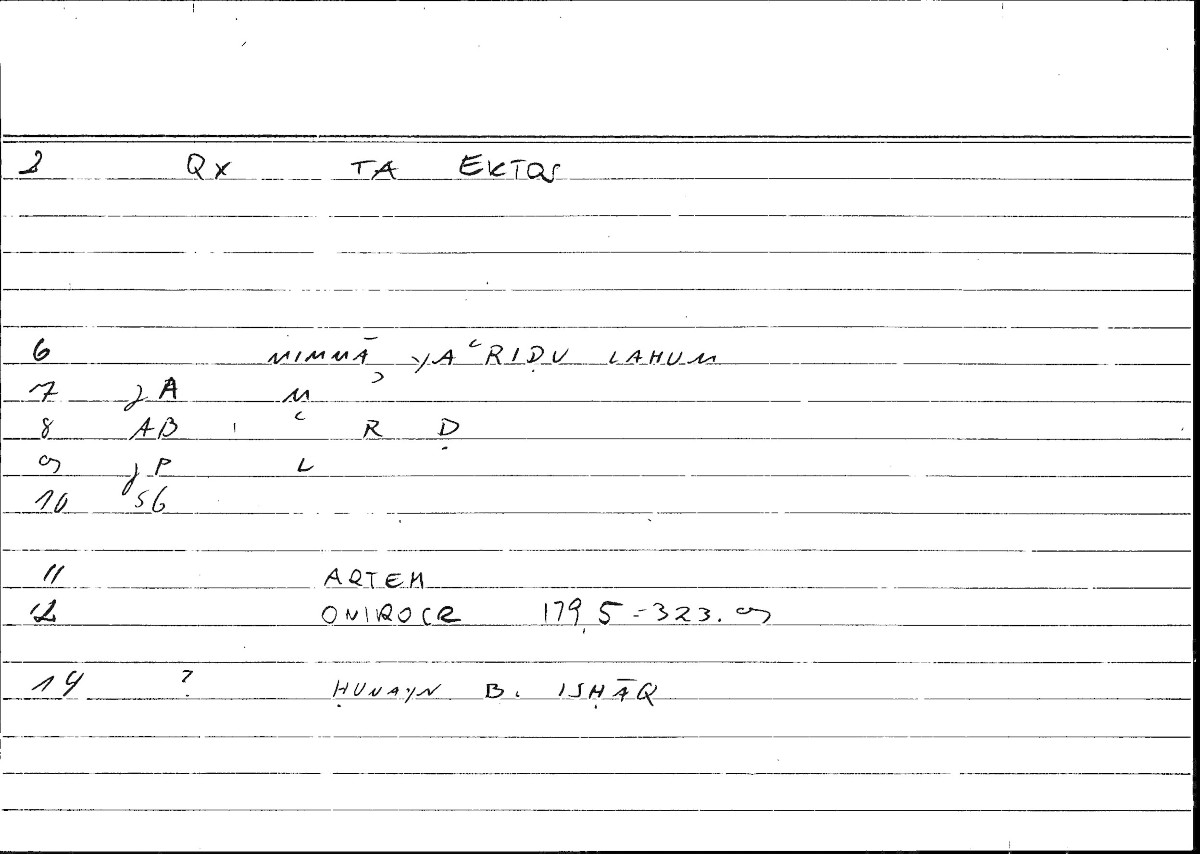 2 Qx TA EKTOS
6 MIMMĀ YAʿRIḌU LAHUM
7 jA M
8 AB ʿ R Ḍ
9 jP L
10 SG
11 ARTEM
12 ONIROCR 179,5 = 323.9
14 ? ḤUNAYN B. ISḤĀQ